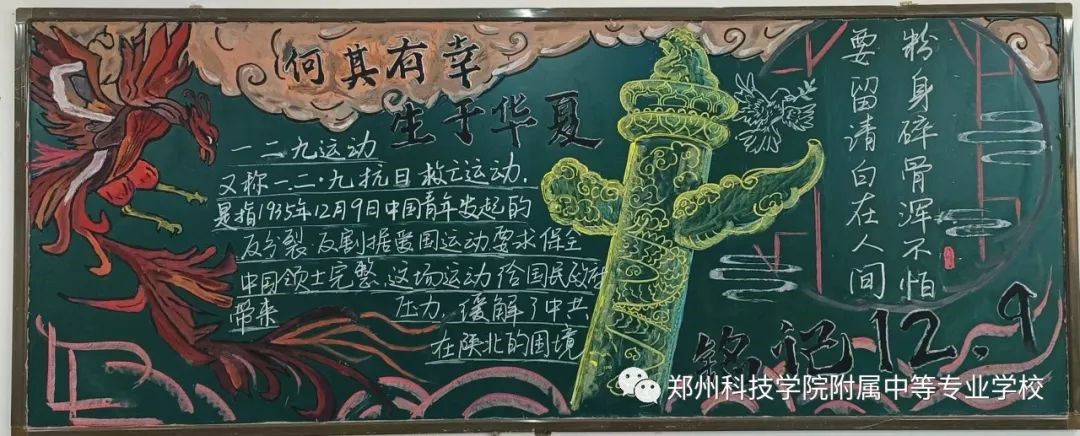 何其有幸
生于华夏
一二九运动
又称一.二·九抗日救亡运动,
是指1935年12月9日中国青年发起的
反分裂.反割据爱国运动,要求保全
中国领土完整,这场运动给国民政府
带来 压力,缓解了中共
在陕北的困境
粉身碎骨浑不怕
要留清白在人间
铭记12.9
郑州科技学院附属中等专业学校